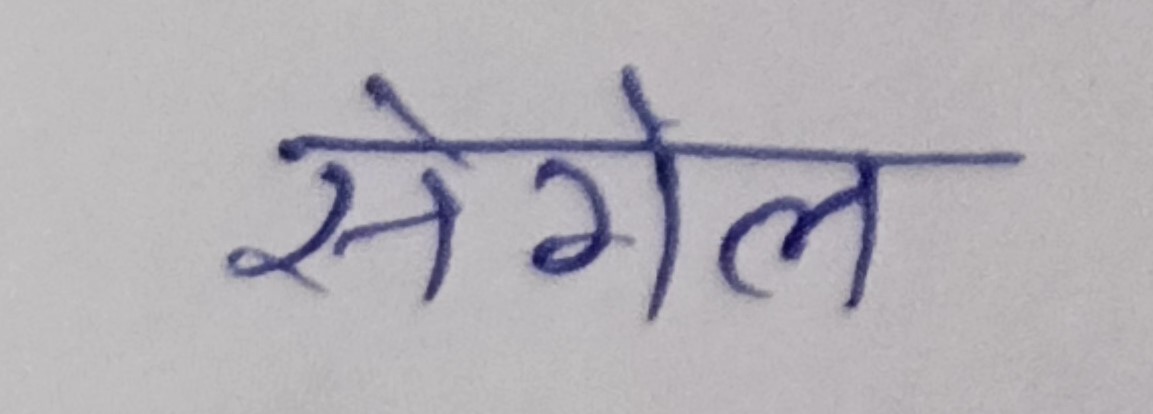 सेगेल